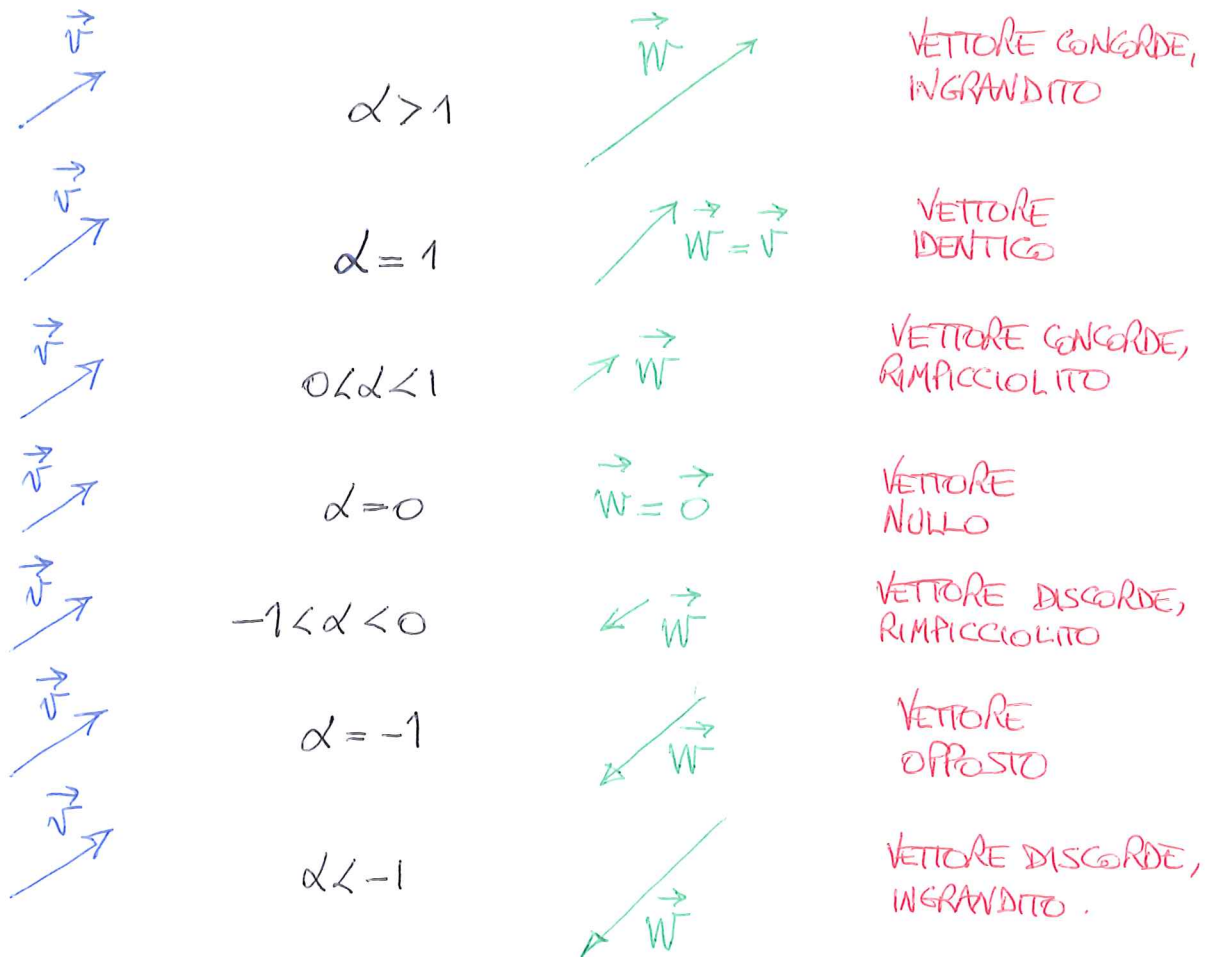 v⃗
α > 1
w⃗
VETTORE CONCORDE,
INGRANDITO
v⃗
α = 1
w⃗ = v⃗
VETTORE
IDENTICO
v⃗
0 < α < 1
w⃗
VETTORE CONCORDE,
RIMPICCIOLITO
v⃗
α = 0
w⃗ = 0⃗
VETTORE
NULLO
v⃗
-1 < α < 0
w⃗
VETTORE DISCORDE,
RIMPICCIOLITO
v⃗
α = -1
w⃗
VETTORE
OPPOSTO
v⃗
α < -1
w⃗
VETTORE DISCORDE,
INGRANDITO.